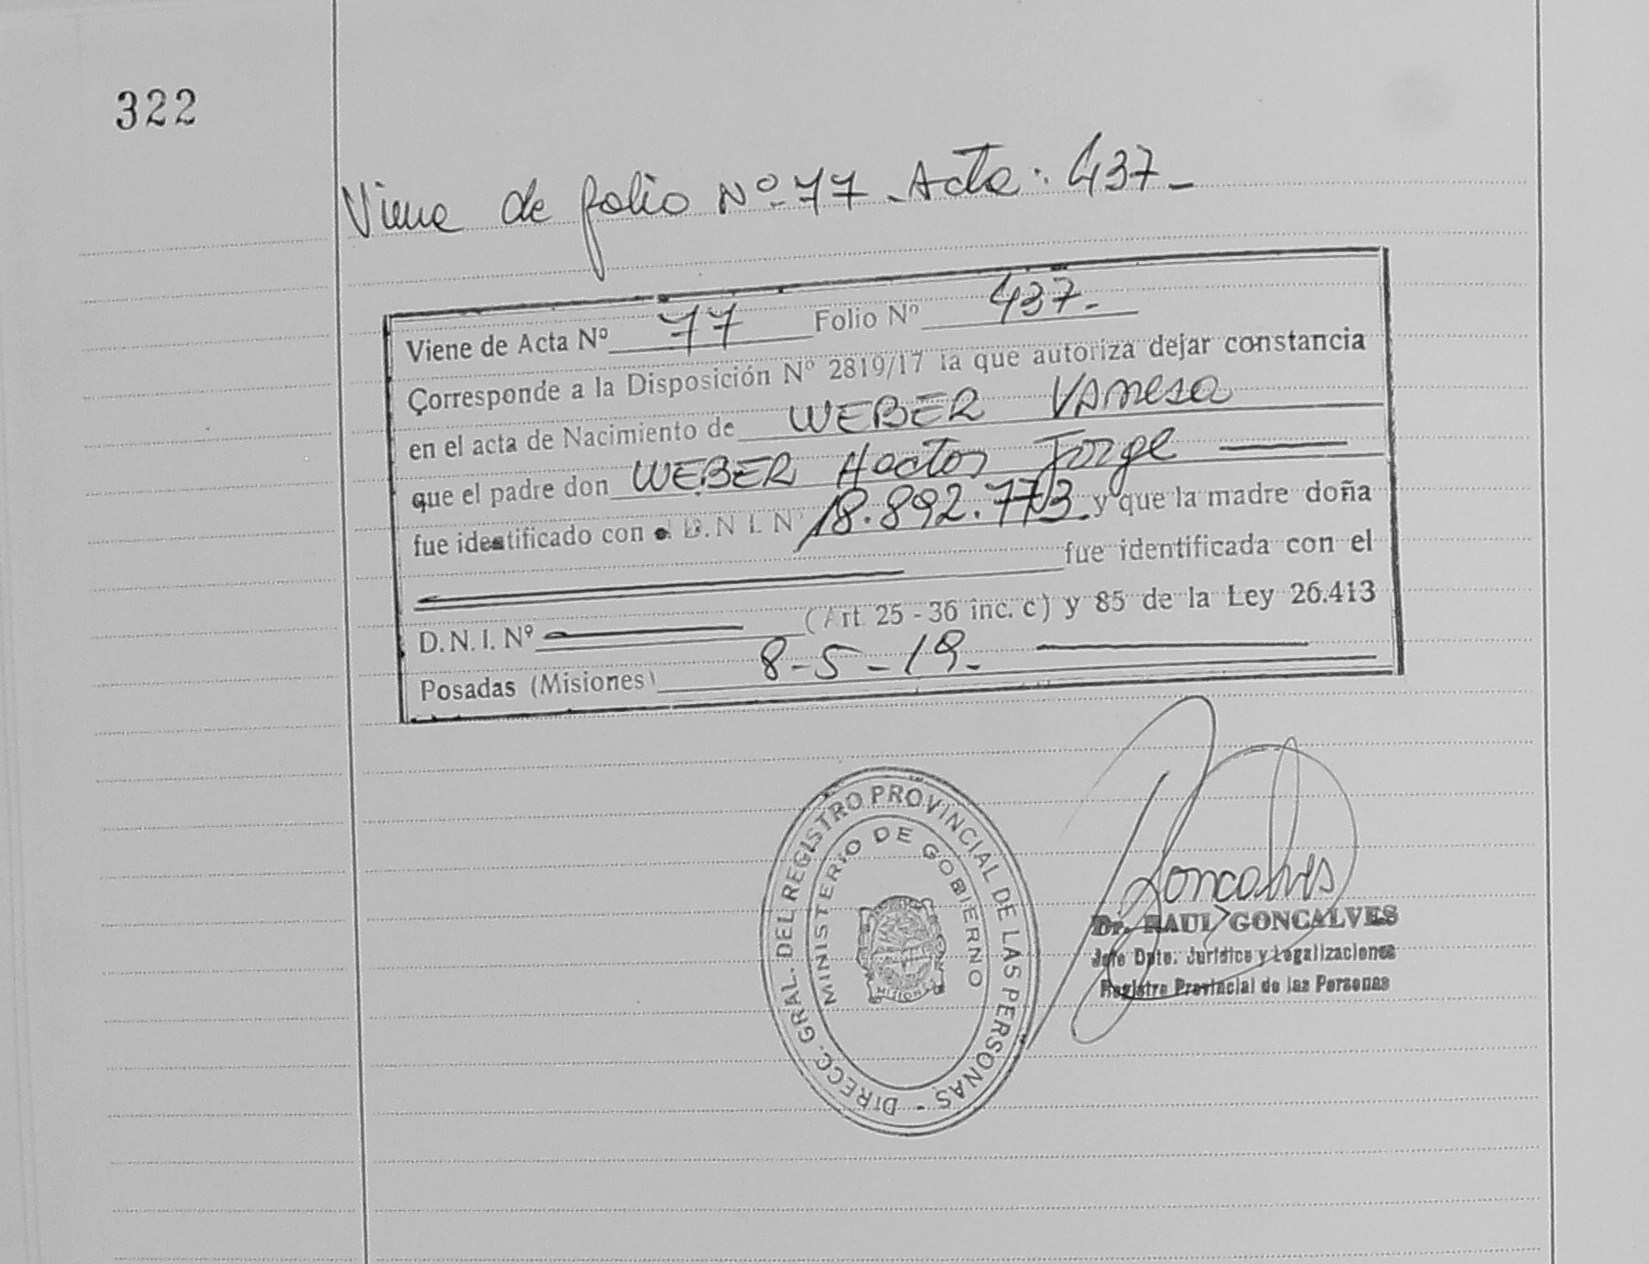 322
Viene de folio Nº 77 - Acta: 437 -
Viene de Acta Nº 77 Folio Nº 437.-
Corresponde a la Disposición Nº 2819/17 la que autoriza dejar constancia
en el acta de Nacimiento de WEBER VANESA
que el padre don WEBER Hector Jorge
fue identificado con el D.N.I. Nº 18.892.773 y que la madre doña
fue identificada con el
D.N.I. Nº (Art. 25 - 36 inc. c) y 85 de la Ley 26.413
Posadas (Misiones) 8-5-19.
DIRECC. GRAL. DEL REGISTRO PROVINCIAL DE LAS PERSONAS -
MINISTERIO DE GOBIERNO
MISIONES
Goncalves
Dr. RAUL GONCALVES
Jefe Dpto. Jurídico y Legalizaciones
Registro Provincial de las Personas